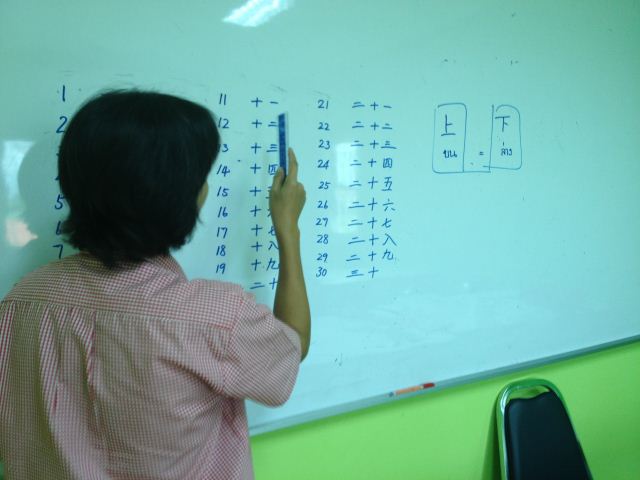 1
2
5
6
7
11 十一
12 十二
13 十三
14 十四
15 十
16 十
17 十七
18 十八
19 十九
二十
21 二十一
22 二十二
23 二十三
24 二十四
25 二十五
26 二十六
27 二十七
28 二十八
29 二十九
30 三十
上 下
บน = ล่าง